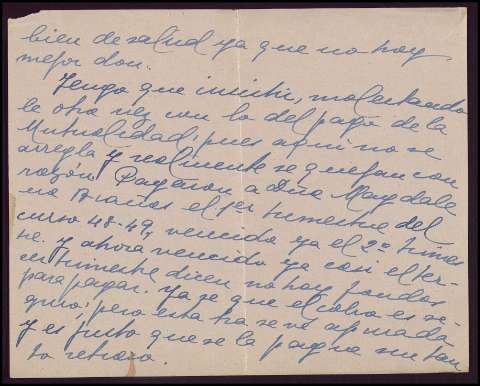 bien de salud ya que no hay
mejor don.
Tengo que insistir, molestando
le otra vez con lo del pago de la
Mutualidad, pues aquí no se
arregla y realmente se quejan con
razón. Pagaron a Dña Magdale
na Brañas el 1er trimestre del
curso 48-49, vencido ya el 2º trimes
tre. Y ahora vencido ya casi el ter-
cer trimestre dicen no hay fondos
para pagar. Ya se que el cobro es se-
guro; pero esta Sra se ve apurada
y es justo que se la pague sin tan
to retraso.